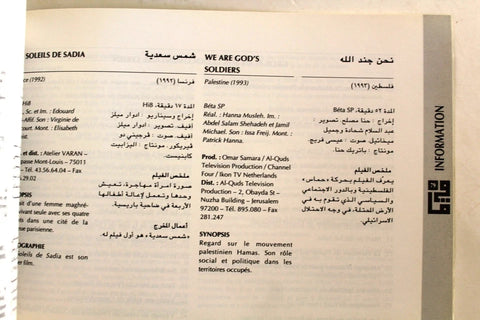 SOLEILS DE SADIA
شمس سعدية
ce (1992)
فرنسا (١٩٩٢)
Hi8
, Sc. et Im. : Edouard
. Affil. Son : Virginie de
court. Mont. : Elisabeth
et dist. : Atelier VARAN –
passe Mont-Louis – 75011
– Tél. 43.56.64.04 – Fax
29.02
المدة ١٧ دقيقة. Hi8
إخراج وسيناريو : ادوار ميلز
أفيف. تصوير : ادوار ميلز
أفيف. صوت : فرجيني دو
فيركور. مونتاج : اليزابيت
كابنيست.
ملخص الفيلم
صورة امرأة مهاجرة، تعيش
وحدها وتعمل لإعالة أطفالها
الأربعة في ضاحية باريسية.
أعمال المخرج
«شمس سعدية» هو أول فيلم له.
OPSIS
ait d'une femme maghré-
vivant seule avec ses quatre
dans une cité de la
ue parisienne.
OGRAPHIE
oleils de Sadia est son
er film.
WE ARE GOD'S
SOLDIERS
نحن جند الله
Palestine (1993)
فلسطين (١٩٩٣)
Béta SP
Réal. : Hanna Musleh. Im. :
Abdel Salam Shehadeh et Jamil
Michael. Son : Issa Freij. Mont. :
Patrick Hanna.
Prod. : Omar Samara / Al-Quds
Television Production / Channel
Four / Ikon TV Netherlands
Dist. : Al-Quds Television
Production – 2, Obayda St –
Nuzha Building – Jerusalem
97200 – Tél. 895.080 – Fax
281.247
SYNOPSIS
Regard sur le mouvement
palestinien Hamas. Son rôle
social et politique dans les
territoires occupés.
المدة ٥٢ دقيقة. Béta SP
إخراج : حنا مصلح. تصوير :
عبد السلام شحادة وجميل
ميخائيل. صوت : عيسى فريج.
مونتاج : باتريك حنا.
ملخص الفيلم
يعرف الفيلم بحركة «حماس»
الفلسطينية وبالدور الاجتماعي
والسياسي الذي تقوم به في
الأرض المحتلة، في وجه الاحتلال
الإسرائيلي.
INFORMATION